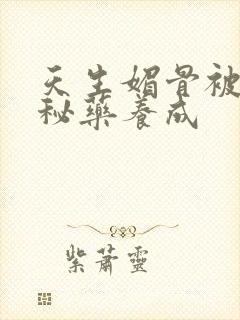 天生媚骨被
秘藥養成
紫蕭靈